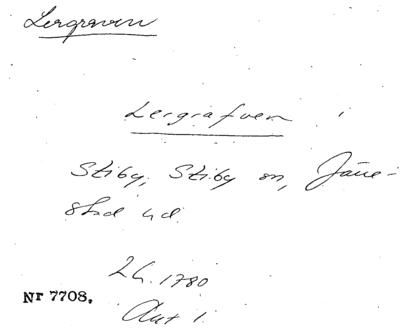 Lergraven
Lergrafven i
Stiby, Stiby sn, Järre-
stad hd.
LH. 1780
Nr 7708.
Akt 1.